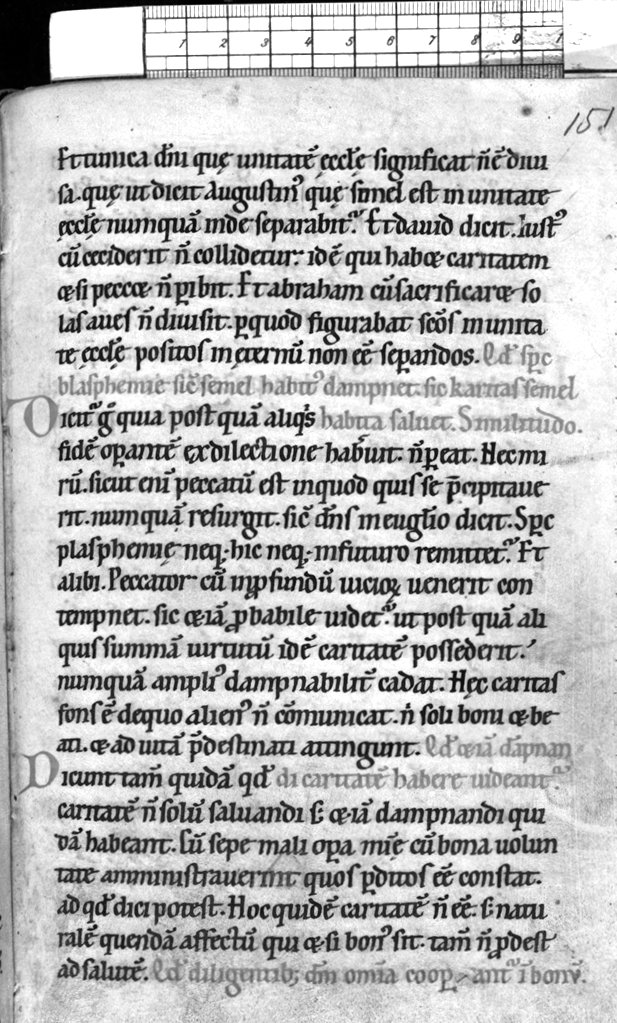 1 2 3 4 5 6 7 8 9 1
151
Et tunica dñi quę unitatē ęccłę significat ñ ē diui
sa. quę ut dicit Augustinꝰ quę simel est in unitate
ęccłę numquā inde separabit᷑. Et dauid dicit. Iustꝰ
cū ceciderit ñ collidetur. id ē qui habæ caritatem
& si peccæ ñ ꝑibit. Et abraham cū sacrificaræ so
las aues ñ diuisit. ꝑ quod figurabat sc̄os in unita
te ęccłę positos in ęternū non eē seꝑandos. Qd̄ sp̄c
blasphemie sic̄ semel habit᷑ dampnet. sic karitas semel
Dicit᷑ g̊ quia post quā aliq̄s habita saluet. Similitudo.
fidē oꝑantē ex dilectione habuit. ñ ꝑeat. Nec mi
rū. sicut eni peccatū est in quod quis se p̄cipitaue
rit. numquā resurgit. sic̄ dñs in eugłio dicit. Sp̄c
plasphemię neq; hic neq; in futuro remittet᷑. Et
alibi. Peccator cū in ꝓfundū uicioꝝ uenerit con
tempnet. sic & iā ꝓbabile uidet᷑. ut post quā ali
quis summā uirtutū id ē caritatē possederit.
numquā ampliꝰ dampnabilit̄ cadat. Hęc caritas
fons ē de quo alienꝰ ñ cōmunicat. ñ soli boni & be
ati. & ad uitā p̄destinati attingunt. Qd̄ & iā dāpnan
Dicunt tam̄ quidā qd̄ di caritatē habere uideant᷑.
caritatē ñ solū saluandi s; & iā dampnandi qui
dā habeant. Cū sepe mali oꝑa mīe cū bona uolun
tate amministrauerint quos ꝑditos eē constat.
ad qd̄ dici potest. Hoc quidē caritatē ñ eē. s; natu
ralē quendā affectū qui & si bonꝰ sit. tam̄ ñ ꝓdest
ad salutē. Qd̄ diligentib; dm̄ omīa cooꝑant᷑ ī bonū.